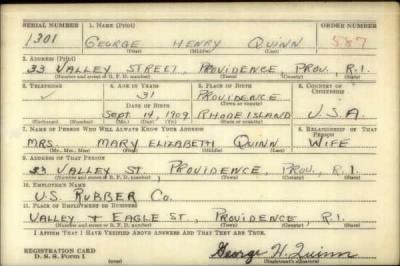 SERIAL NUMBER 1. NAME (Print) ORDER NUMBER
1301 GEORGE HENRY QUINN 587
(First) (Middle) (Last)
2. ADDRESS (Print)
33 VALLEY STREET, PROVIDENCE PROV. R.I.
(Number and street or R. F. D. number) (Town) (County) (State)
3. TELEPHONE 4. AGE IN YEARS 5. PLACE OF BIRTH 6. COUNTRY OF CITIZENSHIP
✓ 31 PROVIDENCE
DATE OF BIRTH (Town or county)
SEPT 14, 1909 RHODE ISLAND U.S.A.
(Exchange) (Number) (Mo.) (Day) (Yr.) (State or country)
7. NAME OF PERSON WHO WILL ALWAYS KNOW YOUR ADDRESS 8. RELATIONSHIP OF THAT PERSON
MRS. MARY ELIZABETH QUINN WIFE
(Mr., Mrs., Miss) (First) (Middle) (Last)
9. ADDRESS OF THAT PERSON
33 VALLEY ST. PROVIDENCE, PROV., R.I.
(Number and street or R. F. D. number) (Town) (County) (State)
10. EMPLOYER'S NAME
U.S. RUBBER CO.
11. PLACE OF EMPLOYMENT OR BUSINESS
VALLEY + EAGLE ST., PROVIDENCE R.I.
(Number and street or R. F. D. number) (Town) (County) (State)
I AFFIRM THAT I HAVE VERIFIED ABOVE ANSWERS AND THAT THEY ARE TRUE.
REGISTRATION CARD
D. S. S. Form 1 George H. Quinn
(Registrant's signature)